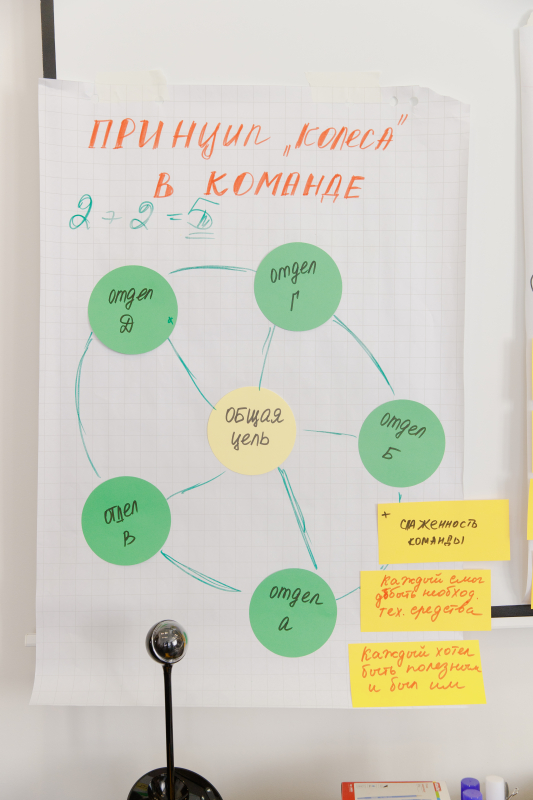 ПРИНЦИП „КОЛЕСА”
В КОМАНДЕ
2 + 2 = 5
отдел
Д
отдел
Г
ОБЩАЯ
ЦЕЛЬ
отдел
Б
отдел
В
отдел
А
+ СЛАЖЕННОСТЬ
КОМАНДЫ
Каждый смог
добыть необход.
тех. средства
Каждый хотел
быть полезным
и был им